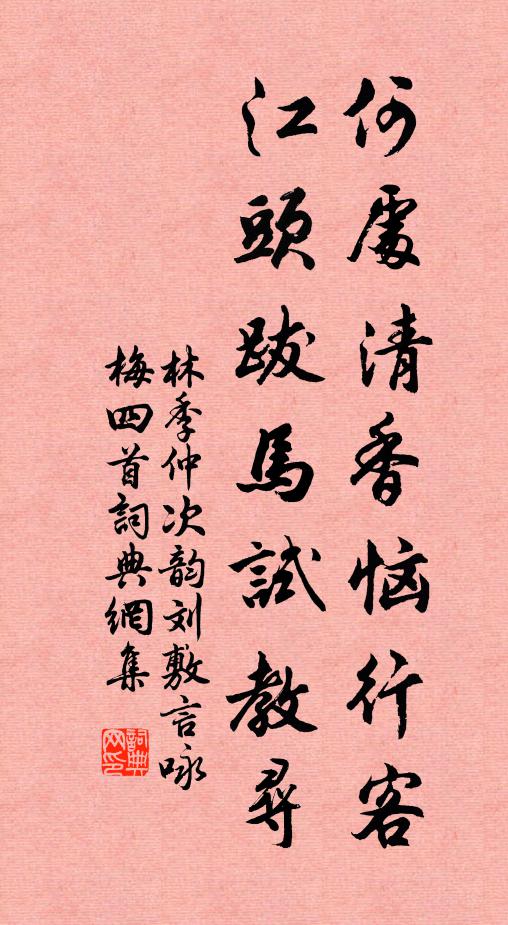 何處清香恼行客
江頭跋馬試教尋
林季仲次韵刘敷言咏
梅四首詞典網集
詞典网印